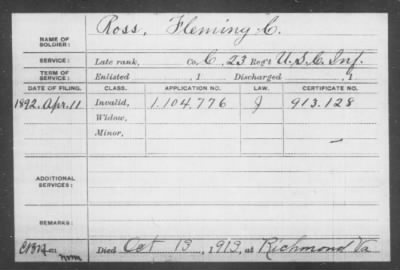 NAME OF SOLDIER: Ross, Fleming C.
SERVICE: Late rank, Co. C, 23 Reg't U.S.C. Inf.
TERM OF SERVICE: Enlisted , 1 Discharged , 1
DATE OF FILING. CLASS. APPLICATION NO. LAW. CERTIFICATE NO.
1892, Apr. 11 Invalid, 1.104.776 J 913.128
Widow,
Minor,
ADDITIONAL SERVICES:
REMARKS:
Died Oct 13, 1913, at Richmond Va